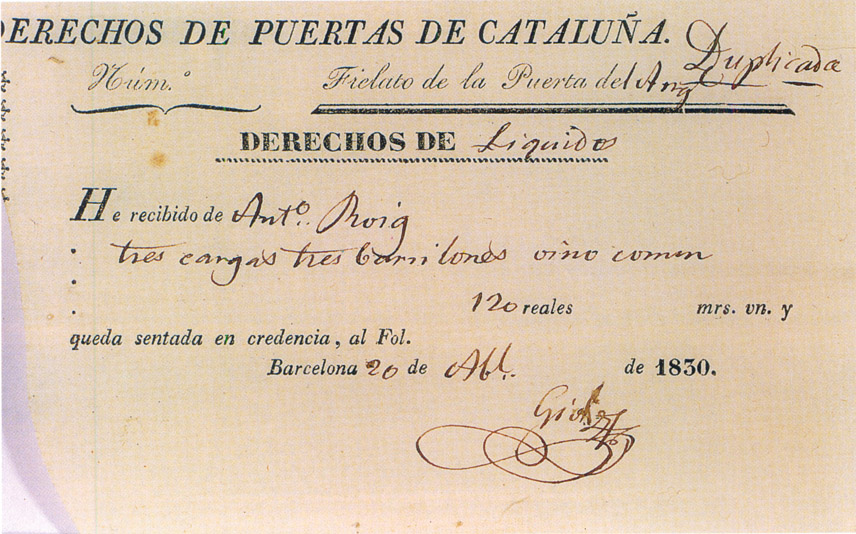 DERECHOS DE PUERTAS DE CATALUÑA.
Duplicada
Núm.º Fielato de la Puerta del Ang
DERECHOS DE Liquidos
He recibido de Ant.º Roig
tres cargas tres barrilones vino comun
120 reales mrs. vn. y
queda sentada en credencia, al Fol.
Barcelona 20 de Abl. de 1830.